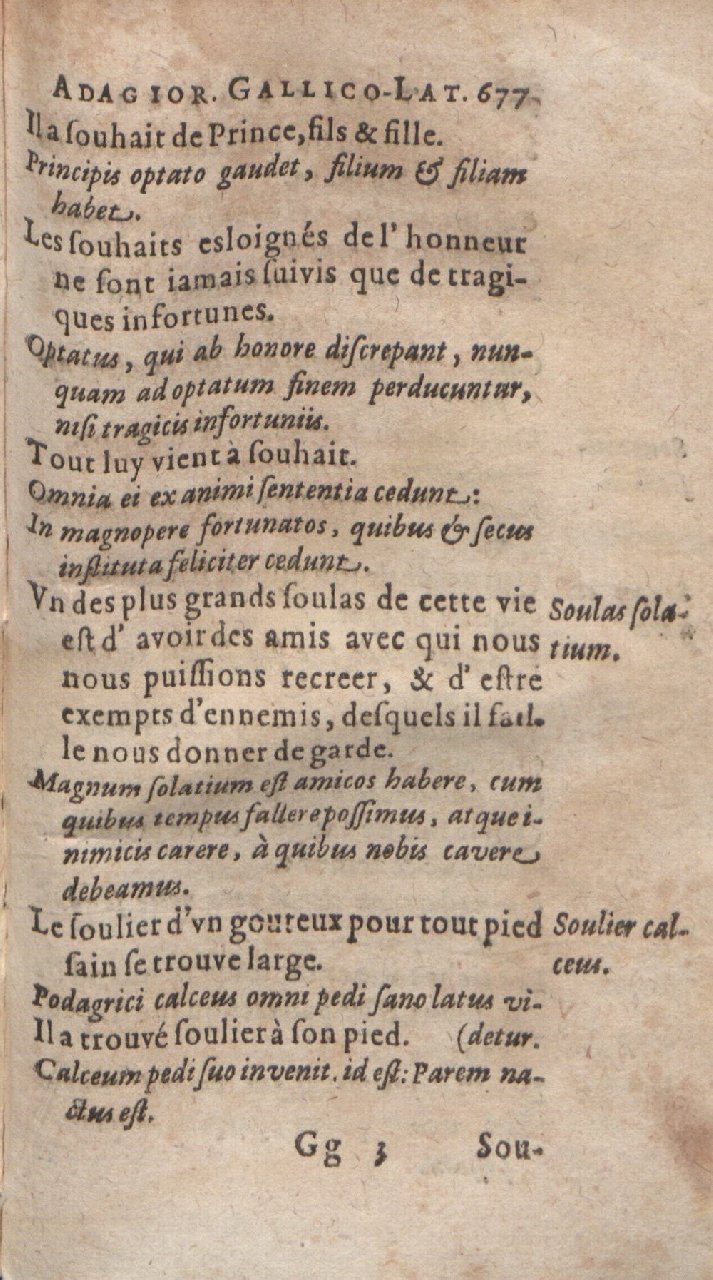 ADAGIOR. GALLICO-LAT. 677
Il a ſouhait de Prince, fils & fille.
Principis optato gaudet, filium & filiam
habet.
Les ſouhaits esloignés de l' honneur
ne ſont iamais ſuivis que de tragi-
ques infortunes.
Optatus, qui ab honore diſcrepant, nun-
quam ad optatum finem perducuntur,
niſi tragicis infortuniis.
Tout luy vient à ſouhait.
Omnia ei ex animi ſententia cedunt:
In magnopere fortunatos, quibus & ſecus
inſtituta feliciter cedunt.
Vn des plus grands ſoulas de cette vie
eſt d' avoir des amis avec qui nous
nous puiſſions recreer, & d' eſtre
exempts d'ennemis, deſquels il fail-
le nous donner de garde.
Soulas ſola-
tium.
Magnum ſolatium eſt amicos habere, cum
quibus tempus fallere poſſimus, atque i-
nimicis carere, à quibus nobis cavere
debeamus.
Le ſoulier d'vn gouteux pour tout pied
ſain ſe trouve large.
Soulier cal-
ceus.
Podagrici calceus omni pedi ſano latus vi-
Il a trouvé ſoulier à ſon pied. (detur.
Calceum pedi ſuo invenit. id eſt: Parem na-
ctus eſt.
Gg 3 Sou-